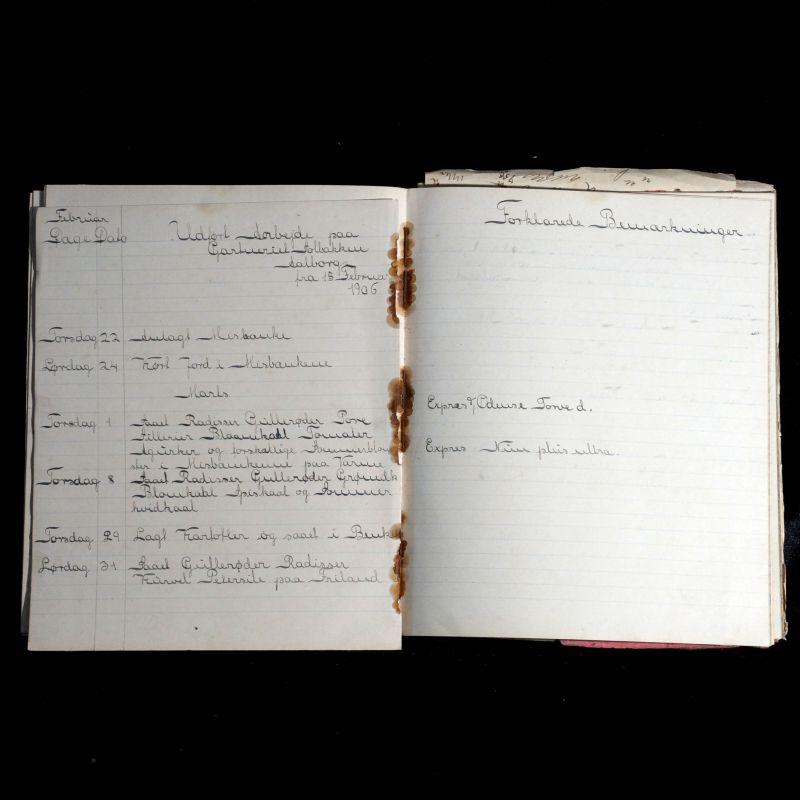 Februar
Dage Dato
Udført Arbejde paa
Gartneriet Solbakken
Aalborg
fra 15 Februar
1906
Torsdag 22 Anlagt Misbænke
Lørdag 24 Kørt Jord i Misbænkene
Marts
Torsdag 1 Saael Radisser Gullerøder Pore
Sillerier Blaamkaal Tomater
Agurker og forskellige Sommerblom
ster i Misbænkene paa Varme
Torsdag 8 Saael Radisser Gullerøder Grøndk
Blomkabl Spiskaal og Sommer
hvidkaal
Torsdag 29 Lagt Kartofler og saaet i Benk
Lørdag 31 Saael Gullerøder Radisser
Kørvel Petersile paa Friland
Forklarede Bemærkninger
Expres & Odense Torve d.
Expres Num plus ultra.